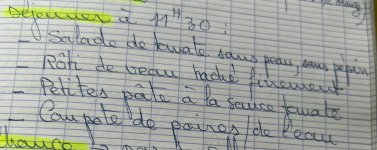 déjeuner à 11H30 :
- Salade de tomate sans peau, sans pépin
- Rôti de veau haché finement
- Petites pâte à la sauce tomate
- Compote de poires / de l'eau